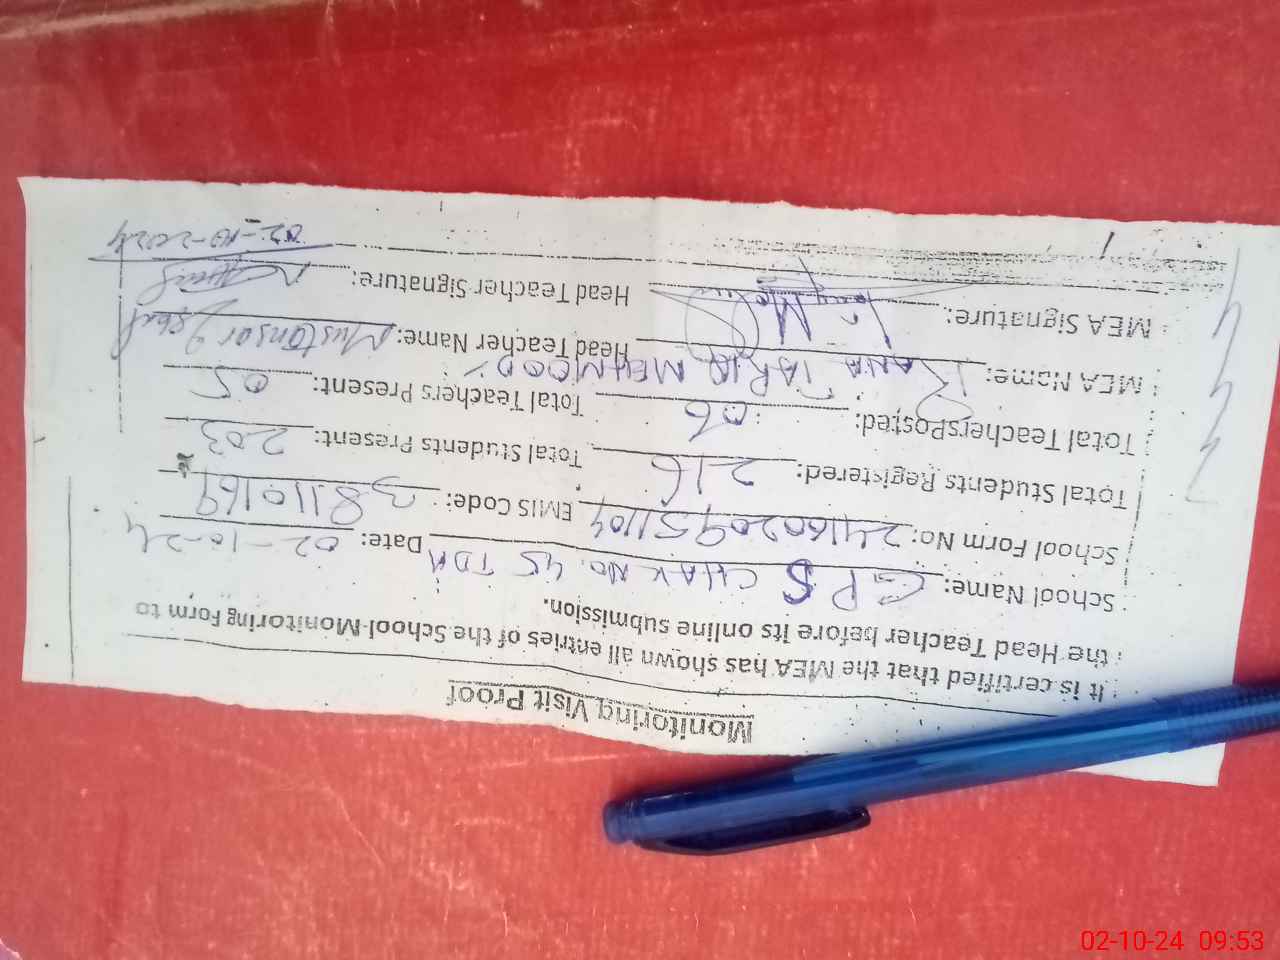 Monitoring Visit Proof
It is certified that the MEA has shown all entries of the School Monitoring Form to
the Head Teacher before its online submission.
School Name: GPS CHAK No. 45 TDA Date: 02-10-24
School Form No: 2416020951104 EMIS Code: 38110169
Total Students Registered: 216 Total Students Present: 203
Total Teachers Posted: 06 Total Teachers Present: 05
MEA Name: RANA TARIQ MEHMOOD Head Teacher Name: Mustansar Iqbal
MEA Signature: Head Teacher Signature:
02-10-2024
02-10-24 09:53